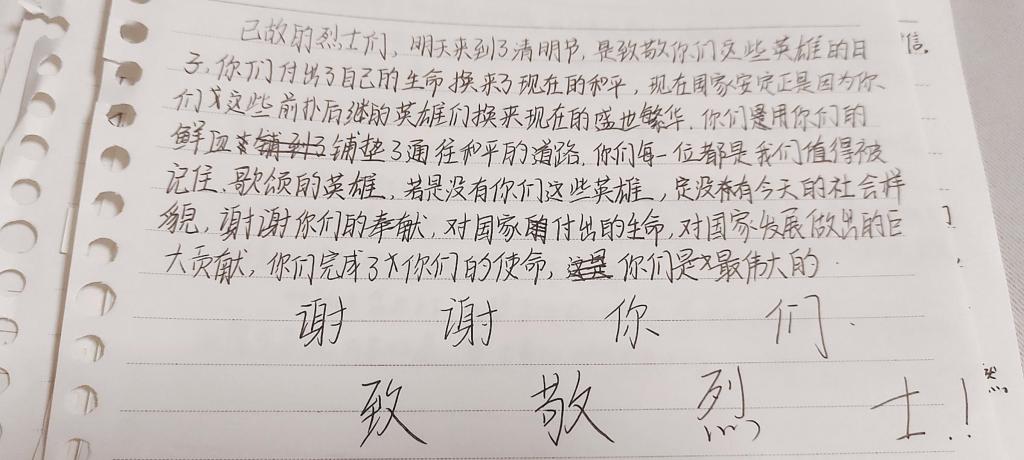 已故的烈士们，明天来到了清明节，是致敬你们这些英雄的日
子，你们付出了自己的生命换来了现在的和平，现在国家安定正是因为你
们这些前扑后继的英雄们换来现在的盛世繁华．你们是用你们的
鲜血铺垫了通往和平的道路．你们每一位都是我们值得被
记住、歌颂的英雄．若是没有你们这些英雄，定没有今天的社会样
貌，谢谢你们的奉献，对国家付出的生命，对国家发展做出的巨
大贡献，你们完成了你们的使命，你们是最伟大的．
谢 谢 你 们．
致 敬 烈 士．！